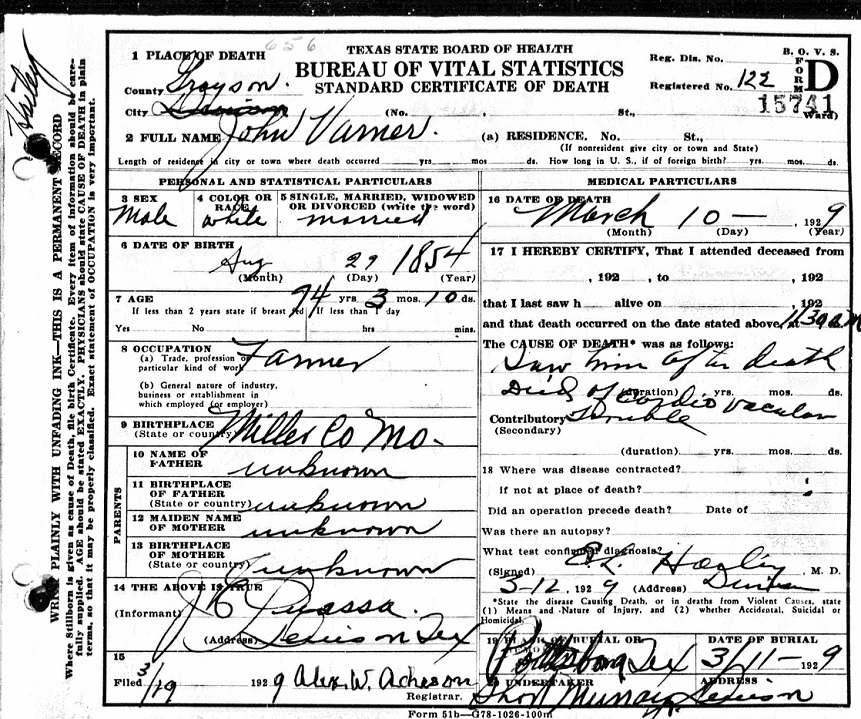 656
TEXAS STATE BOARD OF HEALTH
BUREAU OF VITAL STATISTICS
STANDARD CERTIFICATE OF DEATH
B. O. V. S.
FORM D
Reg. Dis. No.
Registered No. 122
15741
Ward)
1 PLACE OF DEATH
County Grayson.
City Denison (No. , St.,
2 FULL NAME John Varner. (a) RESIDENCE, No. St.,
(If nonresident give city or town and State)
Length of residence in city or town where death occurred yrs. mos ds. How long in U. S., if of foreign birth? yrs. mos. ds.
PERSONAL AND STATISTICAL PARTICULARS
3 SEX
Male
4 COLOR OR RACE
white
5 SINGLE, MARRIED, WIDOWED OR DIVORCED (write the word)
married
6 DATE OF BIRTH
Aug 29 1854
(Month) (Day) (Year)
7 AGE 74 yrs. 3 mos. 10 ds.
If less than 2 years state if breast fed If less than 1 day
Yes No hrs mins.
8 OCCUPATION
(a) Trade, profession or particular kind of work Farmer
(b) General nature of industry, business or establishment in which employed (or employer)
9 BIRTHPLACE
(State or country) Miller Co Mo.
PARENTS
10 NAME OF FATHER unknown
11 BIRTHPLACE OF FATHER
(State or country) unknown
12 MAIDEN NAME OF MOTHER unknown
13 BIRTHPLACE OF MOTHER
(State or country) unknown
14 THE ABOVE IS TRUE
(Informant)
(Address) Denison Tex
15
Filed 3/19 1929 Alex. W. Acheson
Registrar.
MEDICAL PARTICULARS
16 DATE OF DEATH
March 10 — , 1929
(Month) (Day) (Year)
17 I HEREBY CERTIFY, That I attended deceased from
, 192 , to , 192
that I last saw h alive on , 192
and that death occurred on the date stated above, at 1130 am
The CAUSE OF DEATH* was as follows:
Saw him after death
Died of cardio vacular
(duration) yrs. mos. ds.
Contributory trouble
(Secondary)
(duration) yrs. mos. ds.
18 Where was disease contracted?
if not at place of death?
Did an operation precede death? Date of
Was there an autopsy?
What test confirmed diagnosis?
(Signed) , M. D.
3-12, 1929 (Address) Denison
*State the disease Causing Death, or in deaths from Violent Causes, state
(1) Means and Nature of Injury, and (2) whether Accidental, Suicidal or
Homicidal.
19 PLACE OF BURIAL OR REMOVAL
Pottsboro Tex
DATE OF BURIAL
3/11 — 1929
20 UNDERTAKER
Short Murray
ADDRESS
Denison
Form 51b—G78-1026-100m
WRITE PLAINLY WITH UNFADING INK—THIS IS A PERMANENT RECORD
Where Stillborn is given as cause of Death, file birth Certificate. Every item of information should be care-
fully supplied. AGE should be stated EXACTLY. PHYSICIANS should state CAUSE OF DEATH in plain
terms, so that it may be properly classified. Exact statement of OCCUPATION is very important.